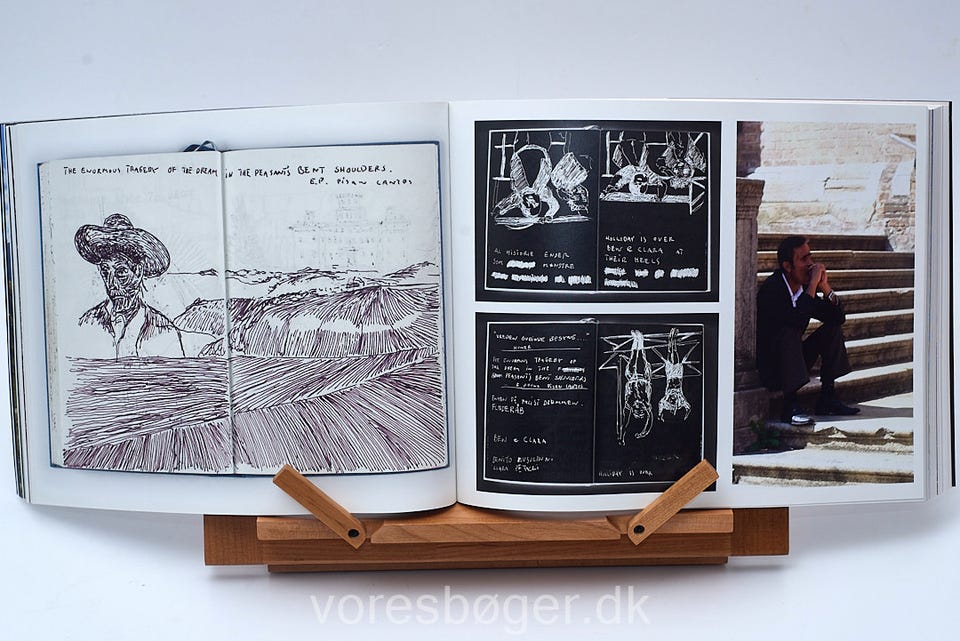 THE ENORMOUS TRAGEDY OF THE DREAM IN THE PEASANT'S BENT SHOULDERS.
E.P. PISAN CANTOS
AL HISTORIE ENDER
SOM MONSTRE
HOLLIDAY IS OVER
BEN & CLARA AT
THEIR HEELS
THE ENORMOUS TRAGEDY OF
THE DREAM IN THE
PEASANT'S BENT SHOULDERS
PISAN CANTOS
BEN & CLARA
BENITO MUSSOLINI
CLARA
HOLLIDAY IS OVER
voresbøger.dk